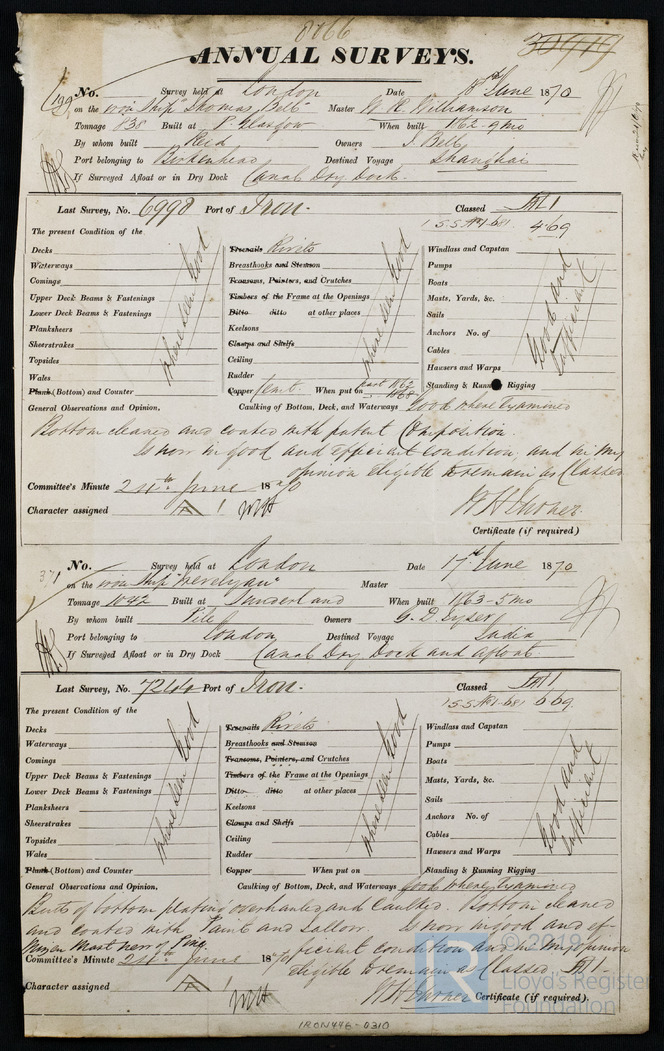 8066
ANNUAL SURVEYS.
No. Survey held at London Date 18th June 1870
on the iron Ship "Thomas Bell" Master W R Williamson
Tonnage 838 Built at P. Glasgow When built 1862-9 mo
By whom built Reid Owners T. Bell
Port belonging to Birkenhead Destined Voyage Shanghai
If Surveyed Afloat or in Dry Dock Canal Dry Dock.
Last Survey, No. 6998 Port of Iron. Classed A 1
The present Condition of the 4.69
Decks Treenails Rivets Windlass and Capstan
Waterways Breasthooks and Stemson Pumps
Comings Transoms, Pointers, and Crutches Boats
Upper Deck Beams & Fastenings Timbers of the Frame at the Openings Masts, Yards, &c.
Lower Deck Beams & Fastenings Ditto ditto at other places Sails
Planksheers Keelsons Anchors No. of
Sheerstrakes Clamps and Shelfs Cables
Topsides Ceiling Hawsers and Warps
Wales Rudder Standing & Running Rigging
Plank (Bottom) and Counter Copper Cemt. When put on part 1862 1868
where seen Good
where seen Good
Good and Sufficient
General Observations and Opinion, Caulking of Bottom, Deck, and Waterways Good where Examined
Bottom cleaned and coated with patent Composition.
Is now in good and efficient condition, and in my
opinion eligible to remain as Classed
Committee's Minute 24th June 1870
Character assigned A 1
Certificate (if required)
371
No. Survey held at London Date 17th June 1870
on the iron Ship "Trevelyan" Master
Tonnage 1042 Built at Sunderland When built 1863-5 mo
By whom built Pile Owners G. D. Tyser
Port belonging to London Destined Voyage India
If Surveyed Afloat or in Dry Dock Canal Dry Dock and afloat
Last Survey, No. Port of Iron. Classed A 1
The present Condition of the 6.69
Decks Treenails Rivets Windlass and Capstan
Waterways Breasthooks and Stemson Pumps
Comings Transoms, Pointers, and Crutches Boats
Upper Deck Beams & Fastenings Timbers of the Frame at the Openings Masts, Yards, &c.
Lower Deck Beams & Fastenings Ditto ditto at other places Sails
Planksheers Keelsons Anchors No. of
Sheerstrakes Clamps and Shelfs Cables
Topsides Ceiling Hawsers and Warps
Wales Rudder Standing & Running Rigging
Plank (Bottom) and Counter Copper When put on
where seen Good
where seen Good
Good and Sufficient
General Observations and Opinion, Caulking of Bottom, Deck, and Waterways Good where Examined
Butts of bottom plating overhauled, and Caulked. Bottom cleaned
and coated with Paint and Tallow. Is now in good and ef-
Mizen Mast new of Pine. ficient condition and in my opinion
Committee's Minute 24th June 1870 eligible to remain as Classed A 1.
Character assigned A 1
Certificate (if required).
© 2019
Lloyd's Register
Foundation
IRON446-0310